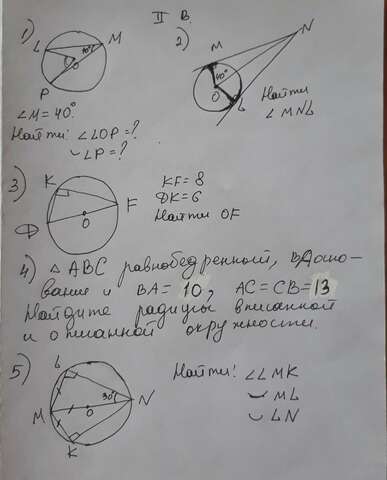 II В.
1)
L
M
40°
O
P
∠M = 40°.
Найти: ∠LOP = ?
◡LP = ?
2)
M
N
40°
O
L
Найти
∠MNL
3)
K
F
O
D
KF = 8
DK = 6
Найти OF
4) △ ABC равнобедренный, BA осно-
вание и BA = 10, AC = CB = 13
Найдите радиусы вписанной
и описанной окружности.
5)
L
M
O
N
30°
K
Найти! ∠LMK
◡ ML
◡ LN